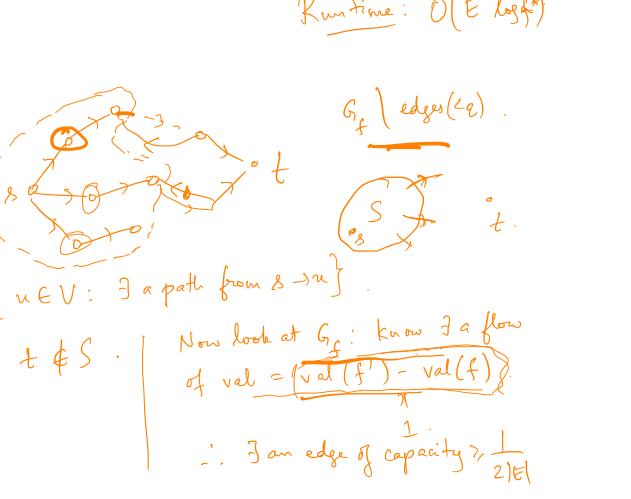 Runtime: O(E log f*)
G_f \ edges(<q) .
s
t
S
s
t.
u ∈ V : ∃ a path from s → u } .
t ∉ S .
Now look at G_f : know ∃ a flow
of val = (val (f') - val(f)) .
1
∴ ∃ an edge of capacity ≥ 1/2|E|